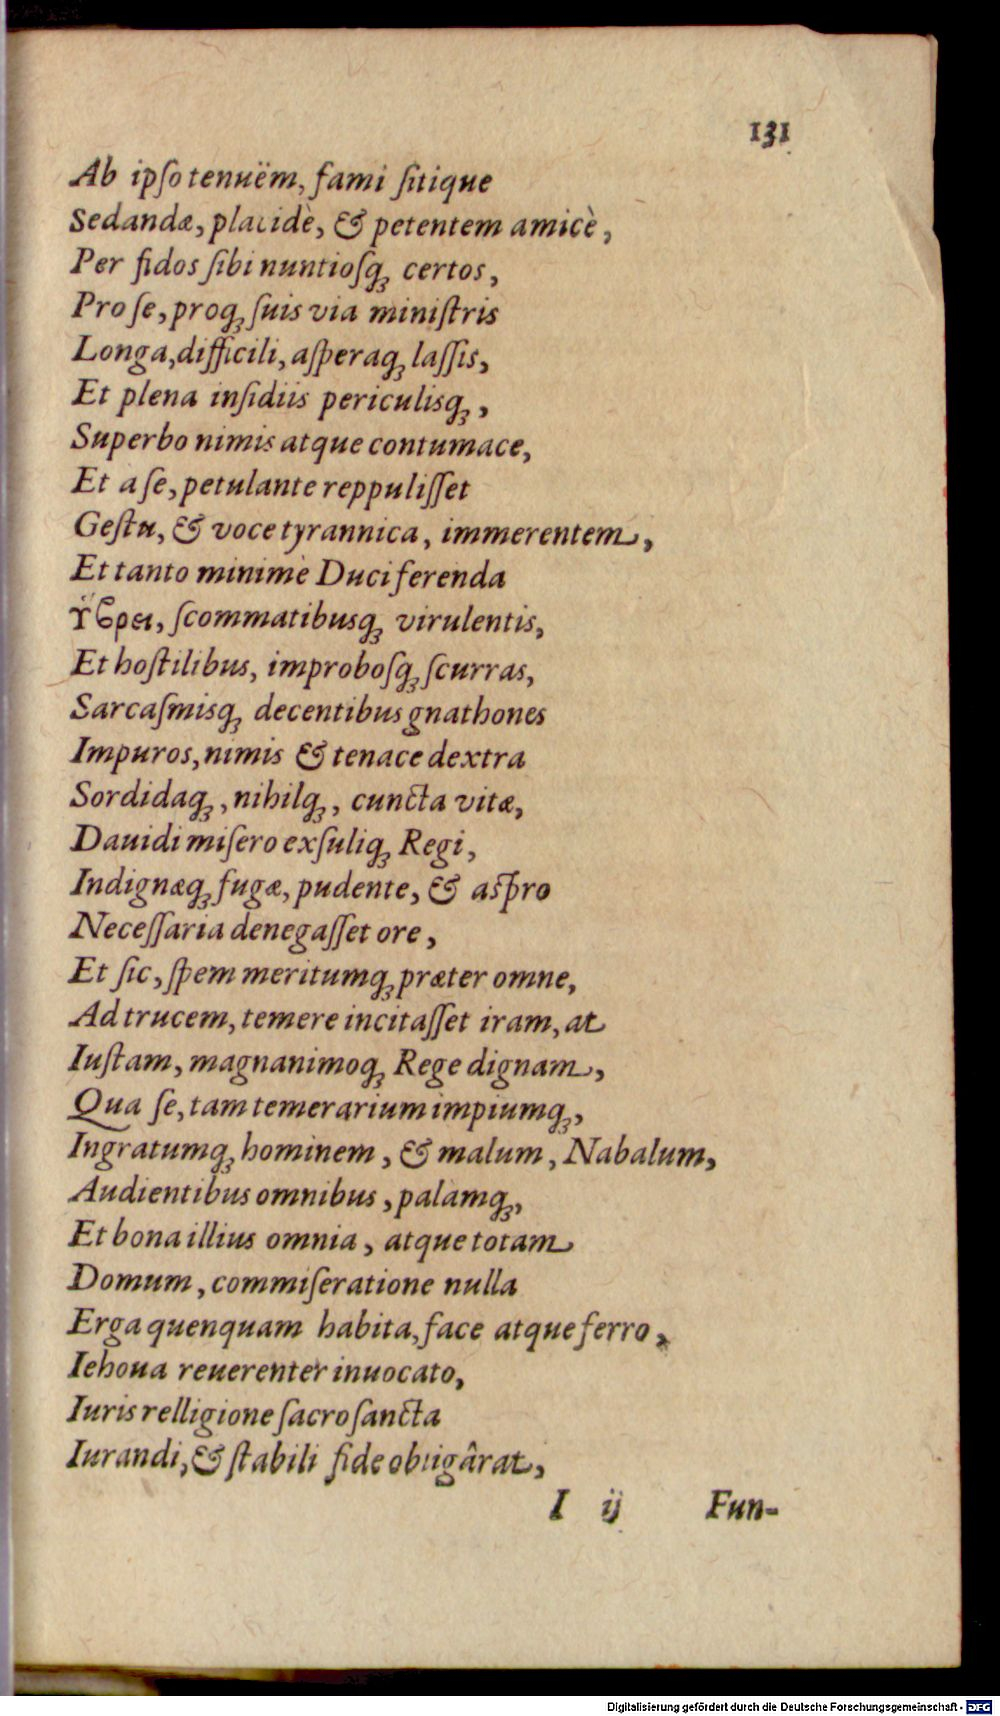 131
Ab ipſo tenuëm, fami ſitique
Sedandæ, placidè, & petentem amicè,
Per fidos ſibi nuntioſq́ꝫ certos,
Pro ſe, proqꝫ ſuis via miniſtris
Longa, difficili, aſperaqꝫ laſſis,
Et plena inſidiis periculisqꝫ,
Superbo nimis atque contumace,
Et a ſe, petulante reppuliſſet
Geſtu, & voce tyrannica, immerentem,
Et tanto minimè Duci ferenda
Ὕβρει, ſcommatibusqꝫ virulentis,
Et hoſtilibus, improboſqꝫ ſcurras,
Sarcaſmisqꝫ decentibus gnathones
Impuros, nimis & tenace dextra
Sordidaqꝫ, nihilqꝫ, cuncta vitæ,
Dauidi miſero exſuliqꝫ Regi,
Indignæqꝫ fugæ, pudente, & aſpro
Neceſſaria denegaſſet ore,
Et ſic, ſpem meritumqꝫ præter omne,
Ad trucem, temere incitaſſet iram, at
Iuſtam, magnanimoqꝫ Rege dignam,
Qua ſe, tam temerarium impiumqꝫ,
Ingratumqꝫ hominem, & malum, Nabalum,
Audientibus omnibus, palàmqꝫ,
Et bona illius omnia, atque totam
Domum, commiſeratione nulla
Erga quenquam habita, face atque ferro,
Iehoua reuerenter inuocato,
Iuris relligione ſacroſancta
Iurandi, & ſtabili fide obligârat,
I ij Fun-
Digitalisierung gefördert durch die Deutsche Forschungsgemeinschaft - DFG